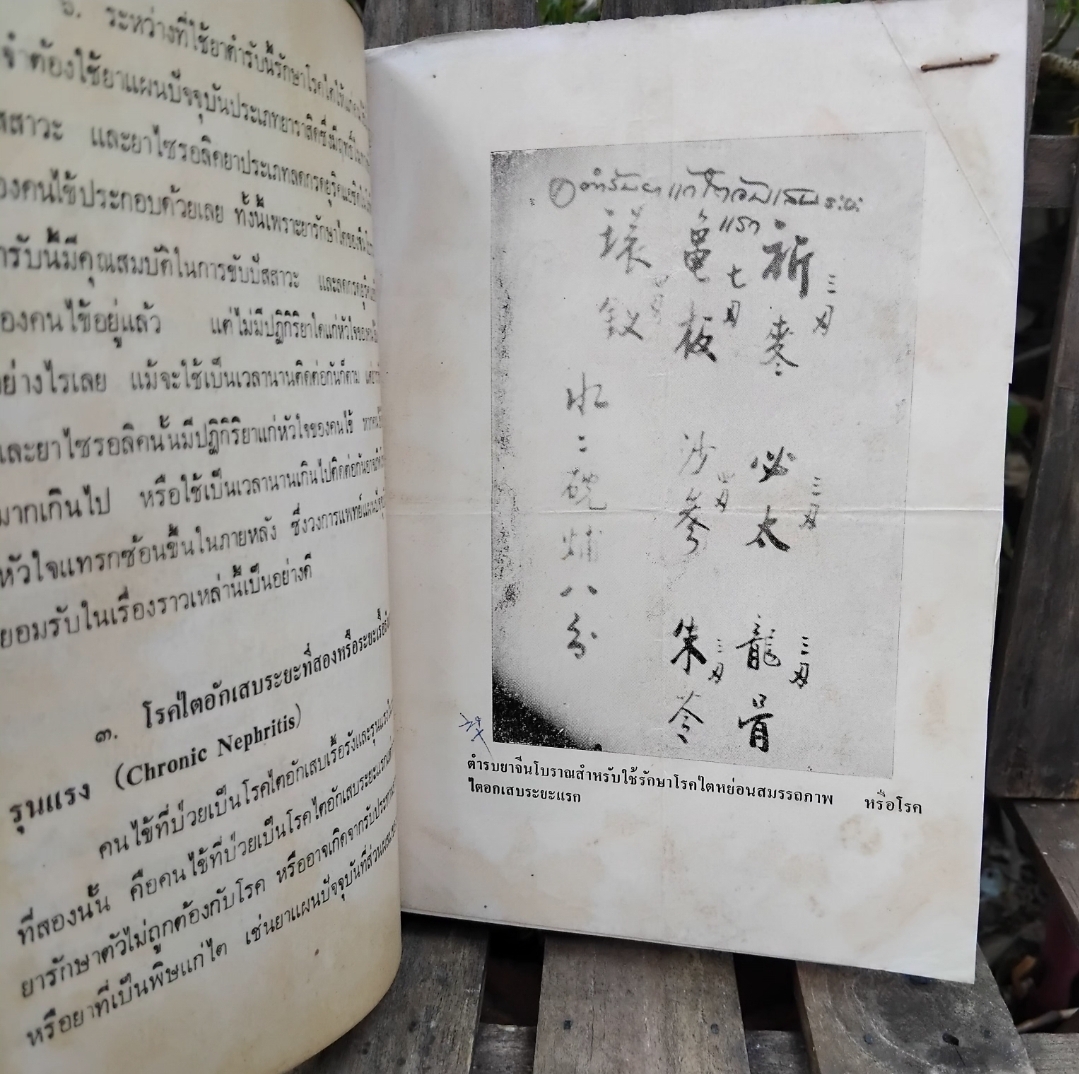 ๖. ระหว่างที่ใช้ยาตำรับนี้รักษาโรคไต
จำต้องใช้ยาแผนปัจจุบันประเภทยา
สสาวะ และยาไซรอลิคยาประเภทลดกรดยูริค
องคนไข้ประกอบด้วยเลย ทั้งนี้เพราะยารักษาไต
ารับนี้มีคุณสมบัติในการขับปัสสาวะ และลดกรดยูริค
องคนไข้อยู่แล้ว แต่ไม่มีปฏิกิริยาใดแก่หัวใจของ
ย่างไรเลย แม้จะใช้เป็นเวลานานติดต่อกันก็ตาม
และยาไซรอลิคนั้นมีปฏิกิริยาแก่หัวใจของคนไข้
มากเกินไป หรือใช้เป็นเวลานานเกินไปติดต่อกัน
หัวใจแทรกซ้อนขึ้นในภายหลัง ซึ่งวงการแพทย์
ยอมรับในเรื่องราวเหล่านี้เป็นอย่างดี
๓. โรคไตอักเสบระยะที่สองหรือระยะเรื้อรัง
รุนแรง (Chronic Nephritis)
คนไข้ที่ป่วยเป็นโรคไตอักเสบเรื้อรังและรุนแรง
ที่สองนั้น คือคนไข้ที่ป่วยเป็นโรคไตอักเสบระยะแรก
ยารักษาตัวไม่ถูกต้องกับโรค หรืออาจเกิดจากรับประทาน
หรือยาที่เป็นพิษแก่ไต เช่นยาแผนปัจจุบันที่ส่วน
ตำรับยาแก้ไตอักเสบระยะ
แรก
三
麥
必太 三
龍骨 三
龜板 七
沙參 四
朱苓 三
水二碗
八分
ตำรบยาจีนโบราณสำหรับใช้รักษาโรคไตหย่อนสมรรถภาพ หรือโรค
ไตอกเสบระยะแรก